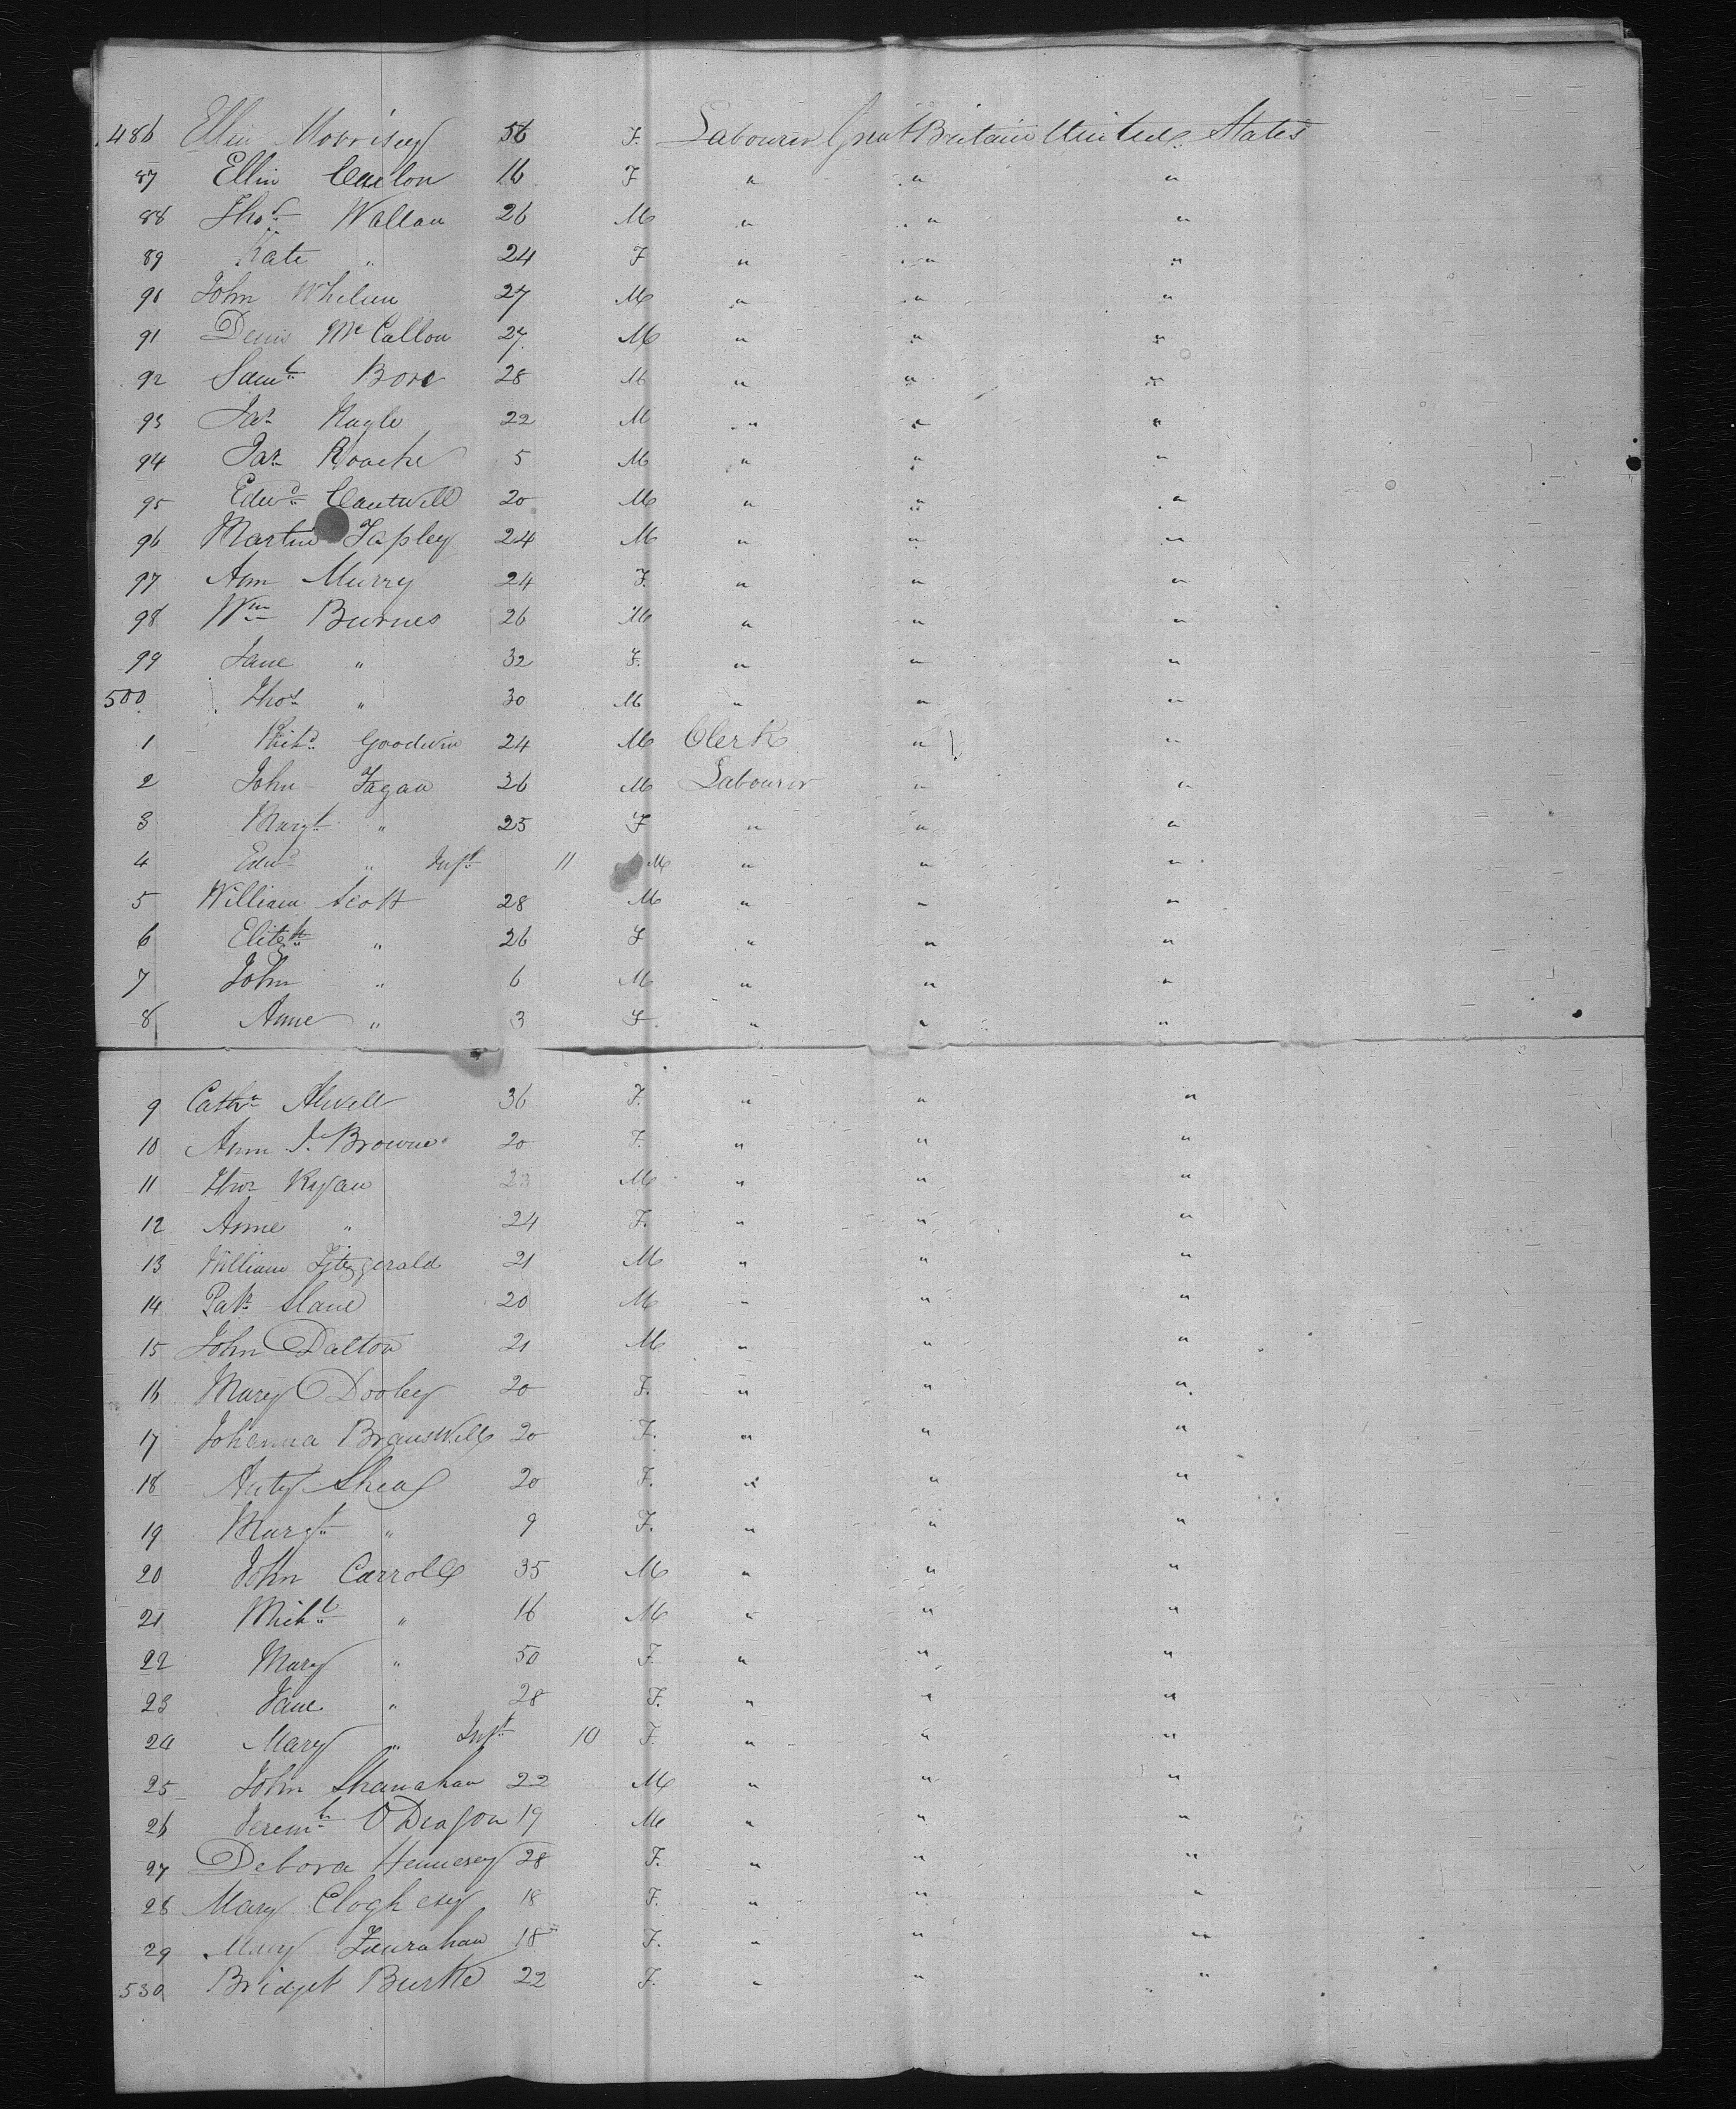 486 Ellin Morrisey 56 F. Labourer Great Britain United States
87 Ellin Carlon 16 F " " "
88 Thos Wallau 26 M " " "
89 Kate " 24 F " " "
90 John Whelun 27 M " " "
91 Denis McCallon 27 M " " "
92 Saml Bore 28 M " " "
93 Jas Nagle 22 M " " "
94 Jas Roache 5 M " " "
95 Edwd Cantwell 20 M " " "
96 Martin Tapley 24 M " " "
97 Ann Murry 24 F. " " "
98 Wm Burnes 26 M " " "
99 Jane " 32 F. " " "
500 Thos " 30 M " " "
1 Richd Goodwin 24 M Clerk " "
2 John Fagan 36 M Labourer " "
3 Margt " 25 F " " "
4 Edwd " Inft 11 M " " "
5 William Scott 28 M " " "
6 Elizth " 26 F " " "
7 John " 6 M " " "
8 Anne " 3 F " " "
9 Cathe Alwell 36 F. " " "
10 Ann J. Browne 20 F. " " "
11 Thos Ryan 23 M " " "
12 Anne " 24 F. " " "
13 William Fitzgerald 21 M " " "
14 Patk Slane 20 M " " "
15 John Dalton 21 M " " "
16 Mary Dooley 20 F. " " "
17 Johanna Branswell 20 F. " " "
18 Anty Shea 20 F. " " "
19 Margt " 9 F. " " "
20 John Carroll 35 M " " "
21 Michl " 16 M " " "
22 Mary " 50 F. " " "
23 Jane " 28 F. " " "
24 Mary " Inft 10 F. " " "
25 John Shanahan 22 M " " "
26 Beremh O'Deason 19 M " " "
27 Debora Hennesey 28 F. " " "
28 Mary Cloghesy 18 F. " " "
29 Mary Fanrahan 18 F. " " "
530 Bridget Burke 22 F. " " "